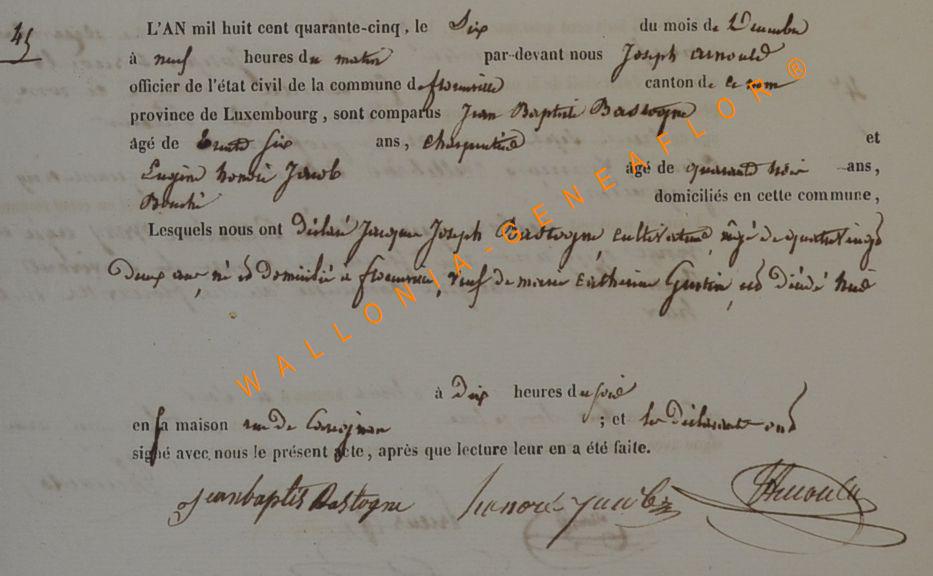 45
L'AN mil huit cent quarante-cinq, le Dix du mois de Décembre
à neuf heures du matin par-devant nous Joseph Arnould
officier de l'état civil de la commune de florenville canton de ce nom
province de Luxembourg, sont comparus Jean Baptiste Bastogne
âgé de trente six ans, charpentier et
Eugène honoré Jacob âgé de quarante trois ans,
domiciliés en cette commune,
Lesquels nous ont déclaré Jacques Joseph Bastogne, cultivateur, âgé de quatre vingt
deux ans, né et domicilié à florenville, veuf de marie Catherine est décédé hier
à dix heures du soir
en sa maison rue de Carignan ; et les déclarants ont
signé avec nous le présent acte, après que lecture leur en a été faite.
jean baptis Bastogne honoré jacob Arnould
WALLONIA-GENEAFLOR®